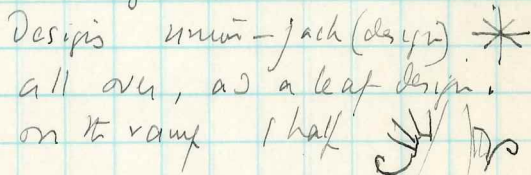 Designs union-jack (design)
all over, as a leaf design.
on the ramp 1 half